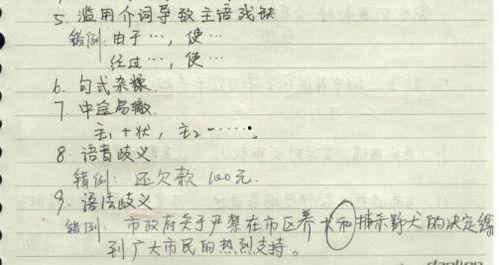 5. 滥用介词导致主语残缺
错例:由于…,使…
经过…,使…
6. 句式杂糅.
7. 中途易辙.
主₁+状,主₂……。
8. 语音歧义.
错例:还欠款100元.
9. 语法歧义
错例:市政府关于严禁在市区养犬和捕杀野犬的决定得
到广大市民的热烈支持。